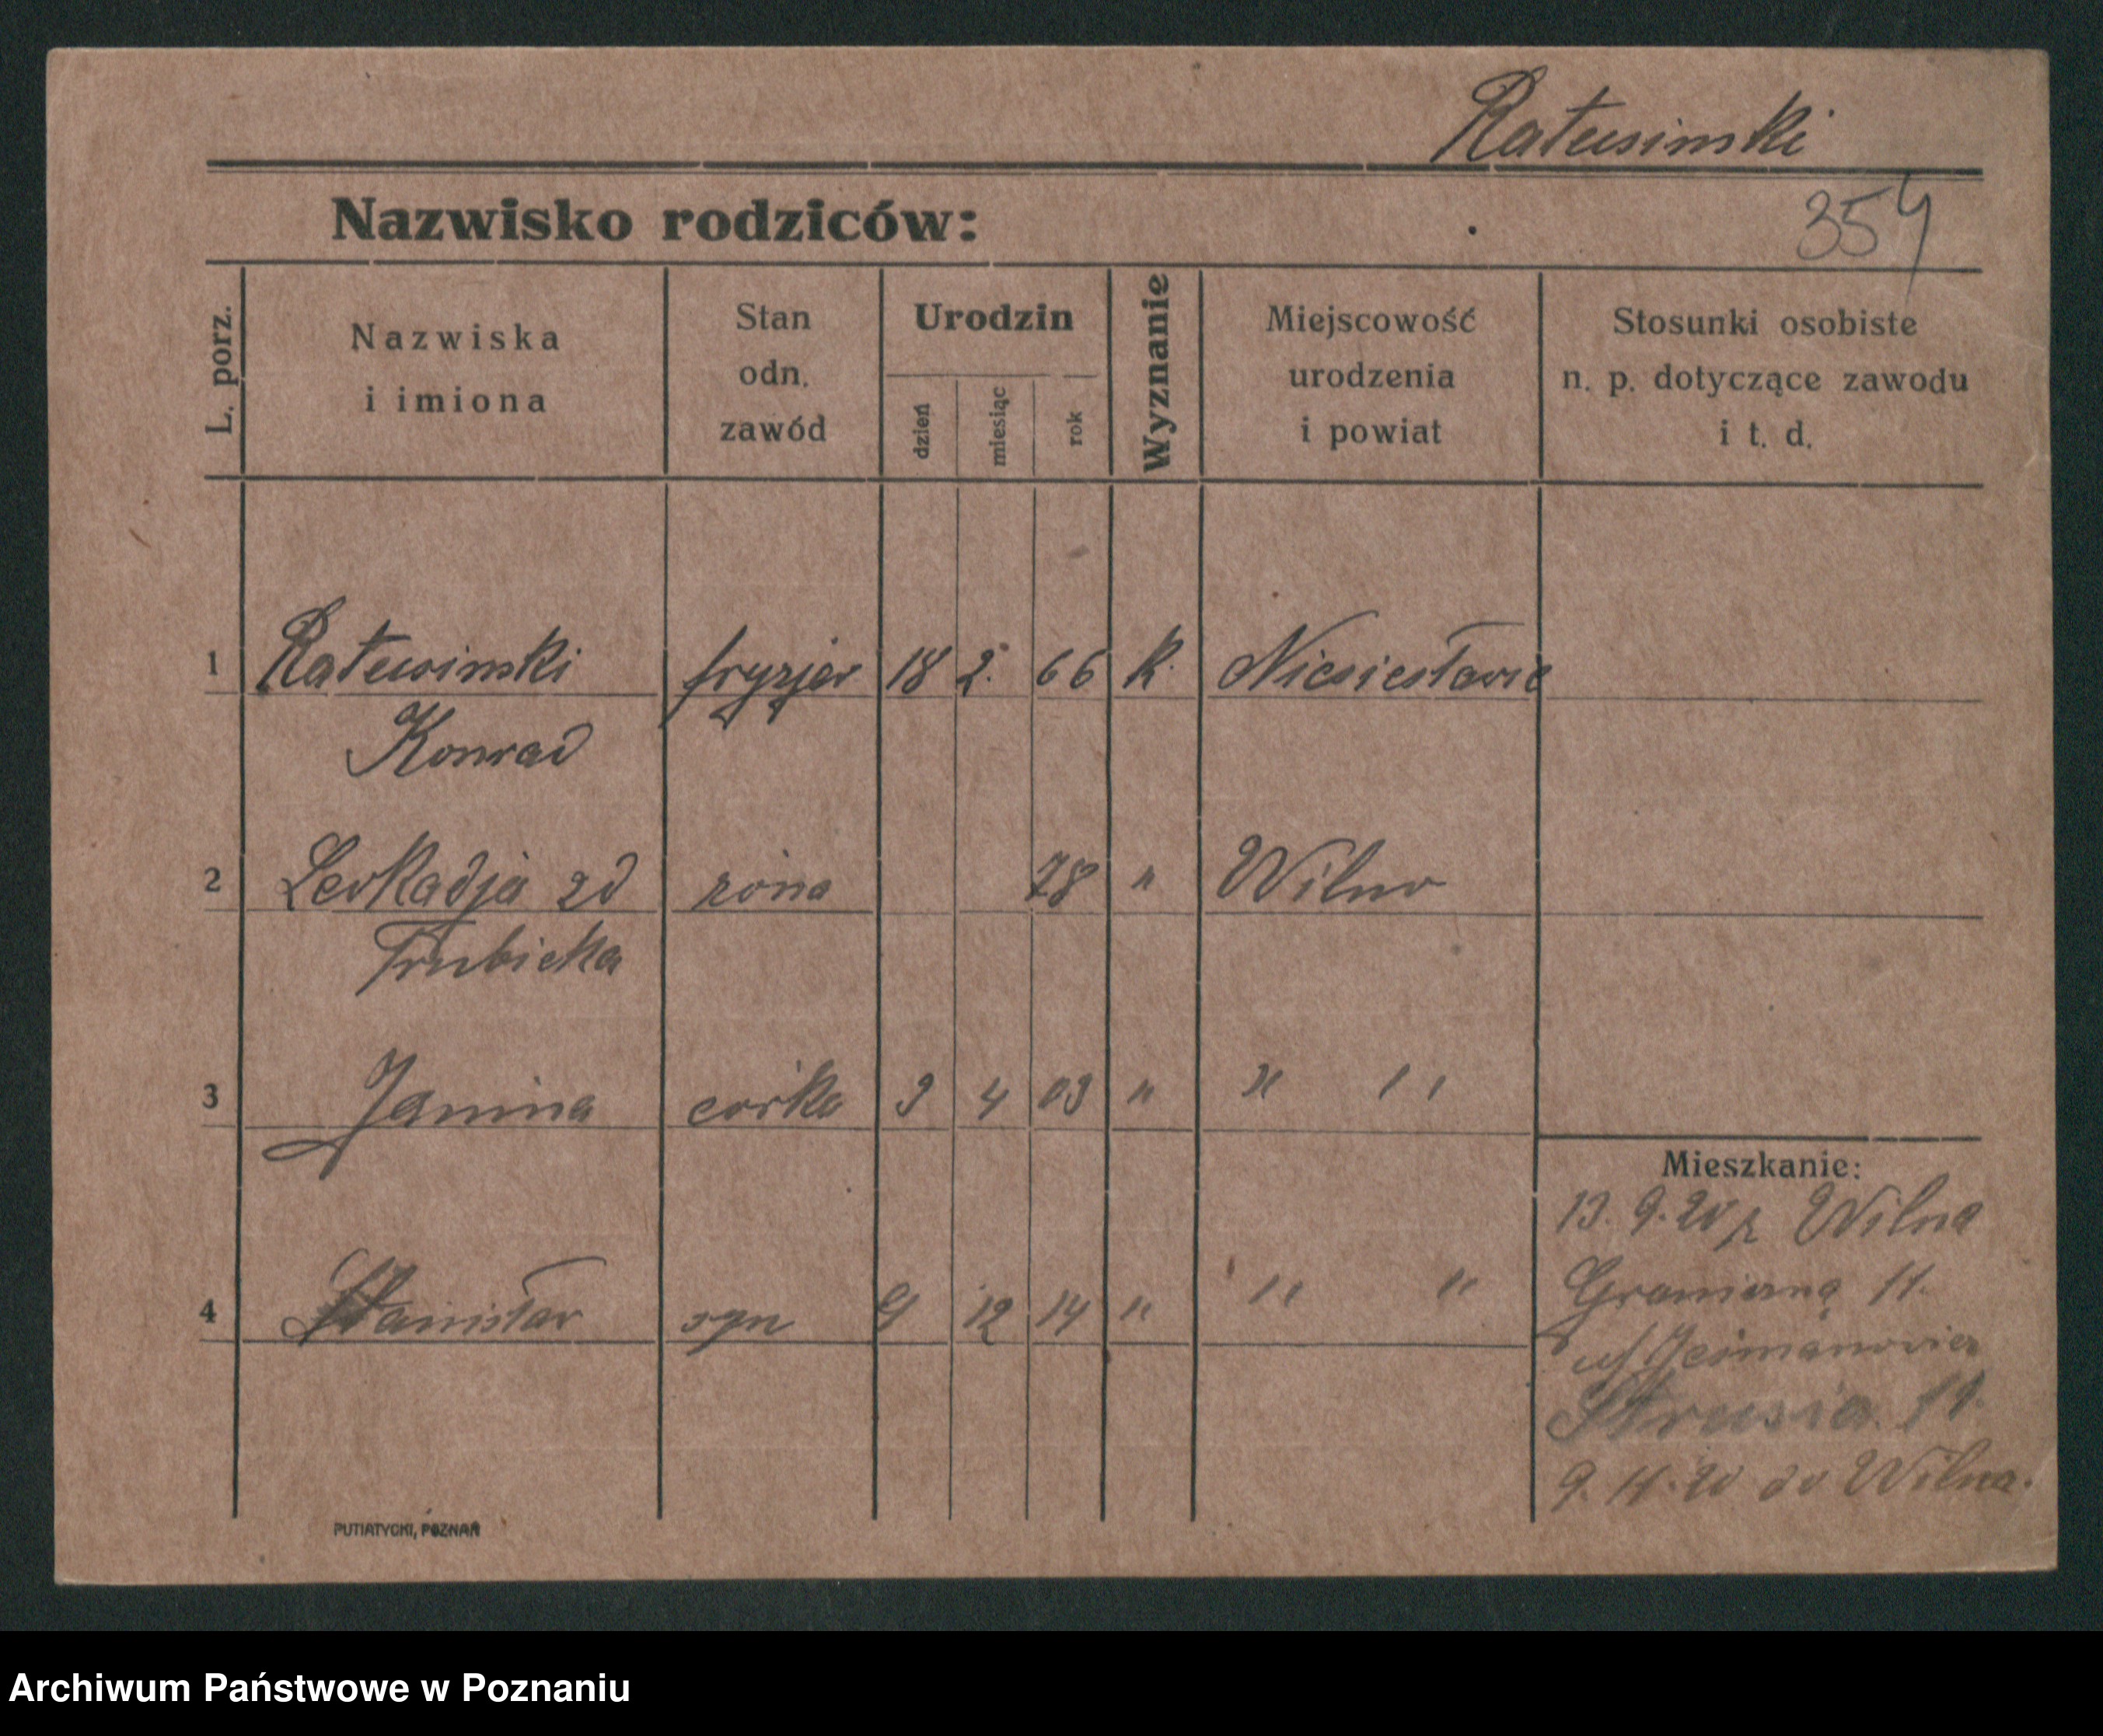 Ratusinski
Nazwisko rodziców:
354
L. porz.
Nazwiska
i imiona
Stan
odn.
zawód
Urodzin
dzień
miesiąc
rok
Wyznanie
Miejscowość
urodzenia
i powiat
Stosunki osobiste
n. p. dotyczące zawodu
i t. d.
1 Ratusinski fryzjer 18 2. 66 k.
Konrad
2 Leokadja zd żona 78 " Wilno
Trubicka
3 Janina córka 9 4 09 " " "
4 Stanisław syn 9 12 14 " " "
Mieszkanie:
13. 9. 20 z Wilna
Graniczna 11.
Strusia 11.
9. 11. 20 do Wilna.
PUTIATYCKI, POZNAŃ
Archiwum Państwowe w Poznaniu